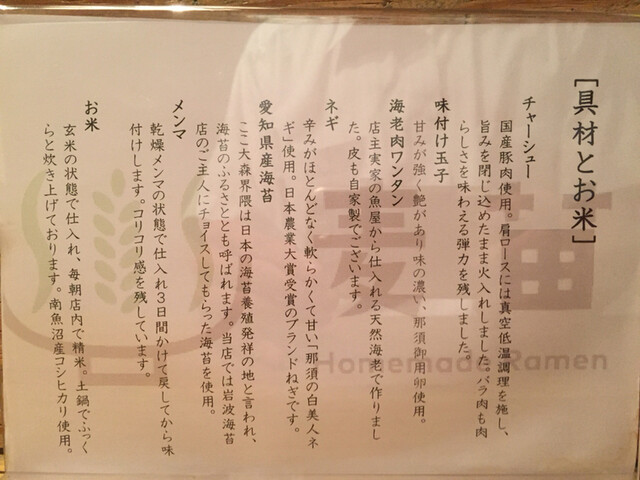 ［具材とお米］
チャーシュー
国産豚肉使用。肩ロースには真空低温調理を施し、
旨みを閉じ込めたまま火入れしました。バラ肉も肉
らしさを味わえる弾力を残しました。
味付け玉子
甘みが強く艶があり味の濃い、那須御用卵使用。
海老肉ワンタン
店主実家の魚屋から仕入れる天然海老で作りまし
た。皮も自家製でございます。
ネギ
辛みがほとんどなく軟らかくて甘い「那須の白美人ネ
ギ」使用。日本農業大賞受賞のブランドねぎです。
愛知県産海苔
ここ大森界隈は日本の海苔養殖発祥の地と言われ、
海苔のふるさととも呼ばれます。当店では岩波海苔
店のご主人にチョイスしてもらった海苔を使用。
メンマ
乾燥メンマの状態で仕入れ３日間かけて戻してから味
付けします。コリコリ感を残しています。
お米
玄米の状態で仕入れ、毎朝店内で精米。土鍋でふっく
らと炊き上げております。南魚沼産コシヒカリ使用。
麦苗
Homemade Ramen